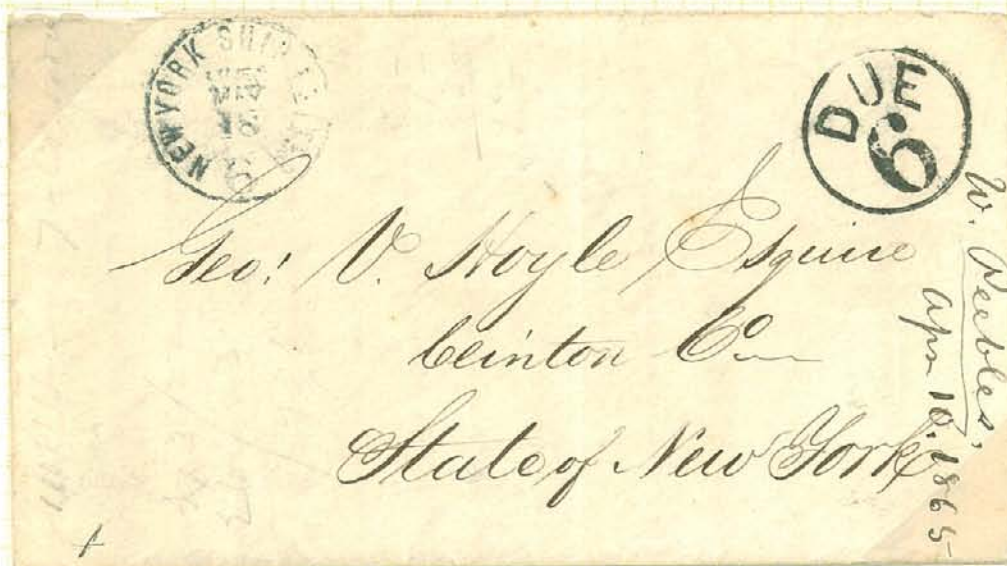 NEW YORK SHIP LETTER
18
DUE
6
Geo: V. Hoyle Esquire
Clinton Co
State of New York
W. Peebles,
Apr 10, 1865